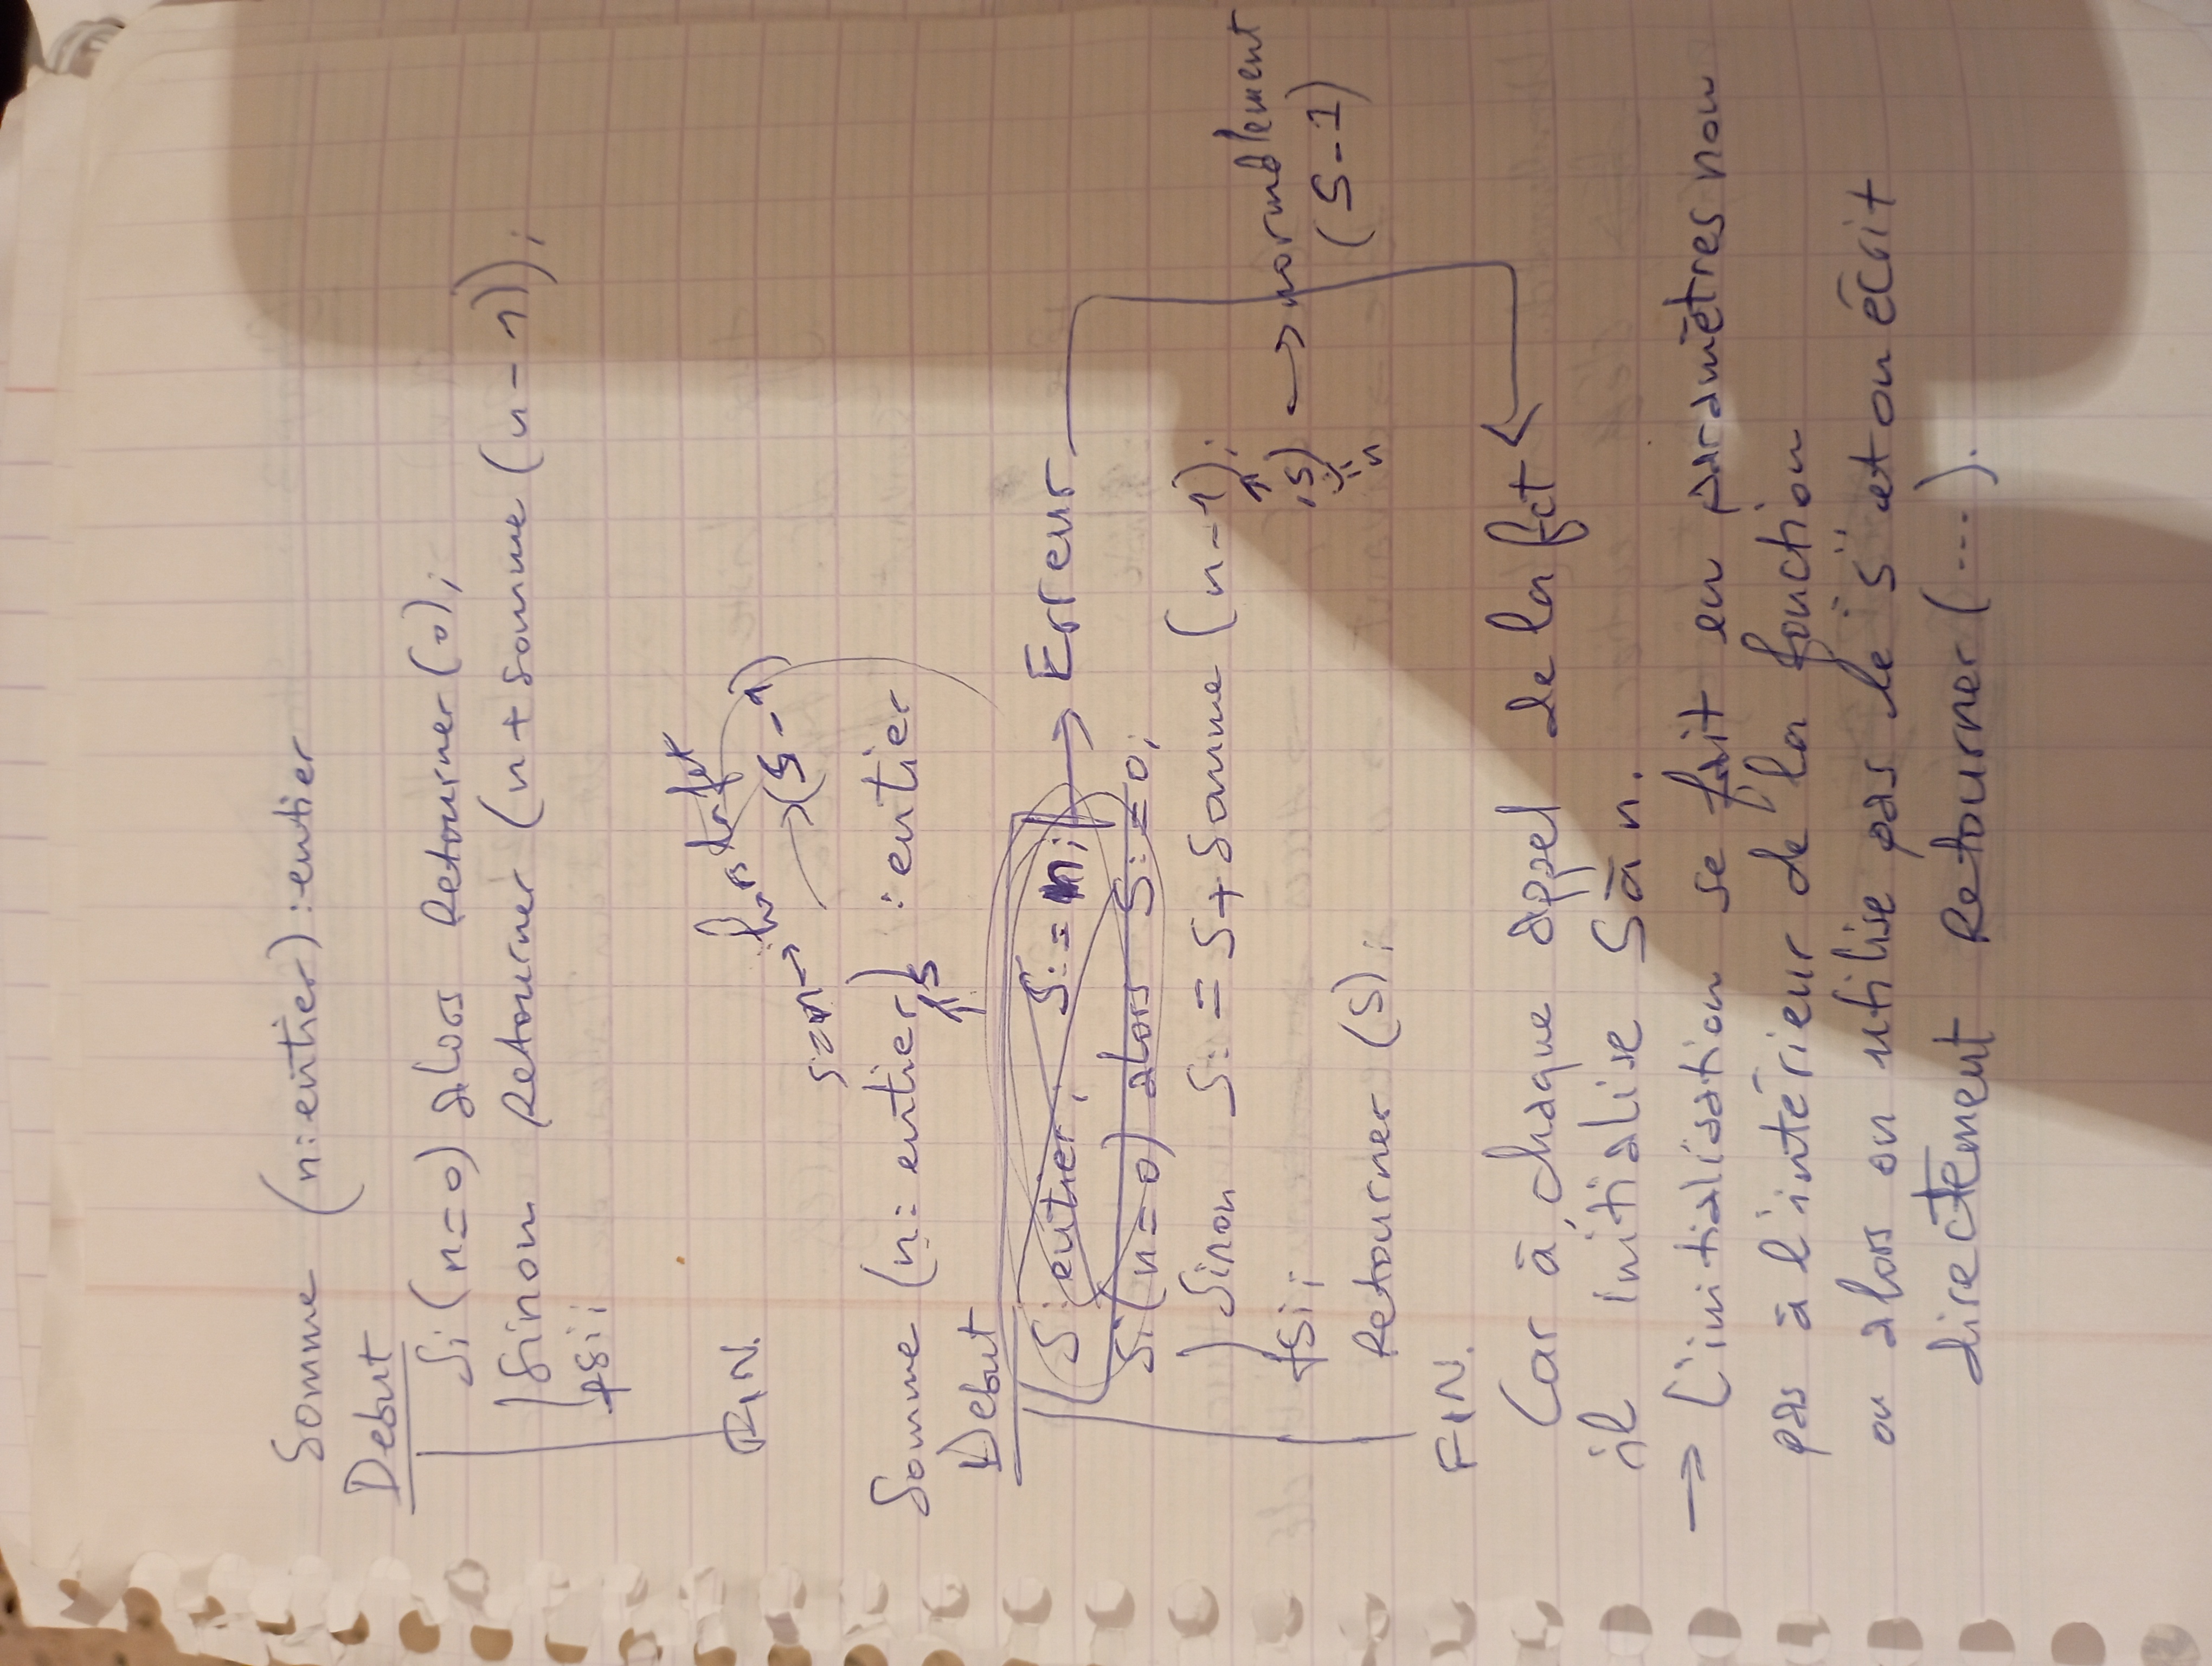 Somme (n: entier) : entier
Debut
Si (n=0) alors Retourner (0);
Sinon Retourner (n + somme (n-1));
fsi;
FIN.
s=n → hors la fct
→ (S-1)
Somme (n: entier) : entier
, s
Debut
S: entier; S:=n; → Erreur
Si (n=0) alors S:=0;
Sinon S:= S+Somme (n-1);
, s) → normalement
:=n (S-1)
fsi;
Retourner (S);
FIN.
Car à chaque appel de la fct
il initialise S à n.
→ L'initialisation se fait en paramètres non
pas à l'intérieur de la fonction
ou alors on utilise pas le "s" et on écrit
directement Retourner (...).